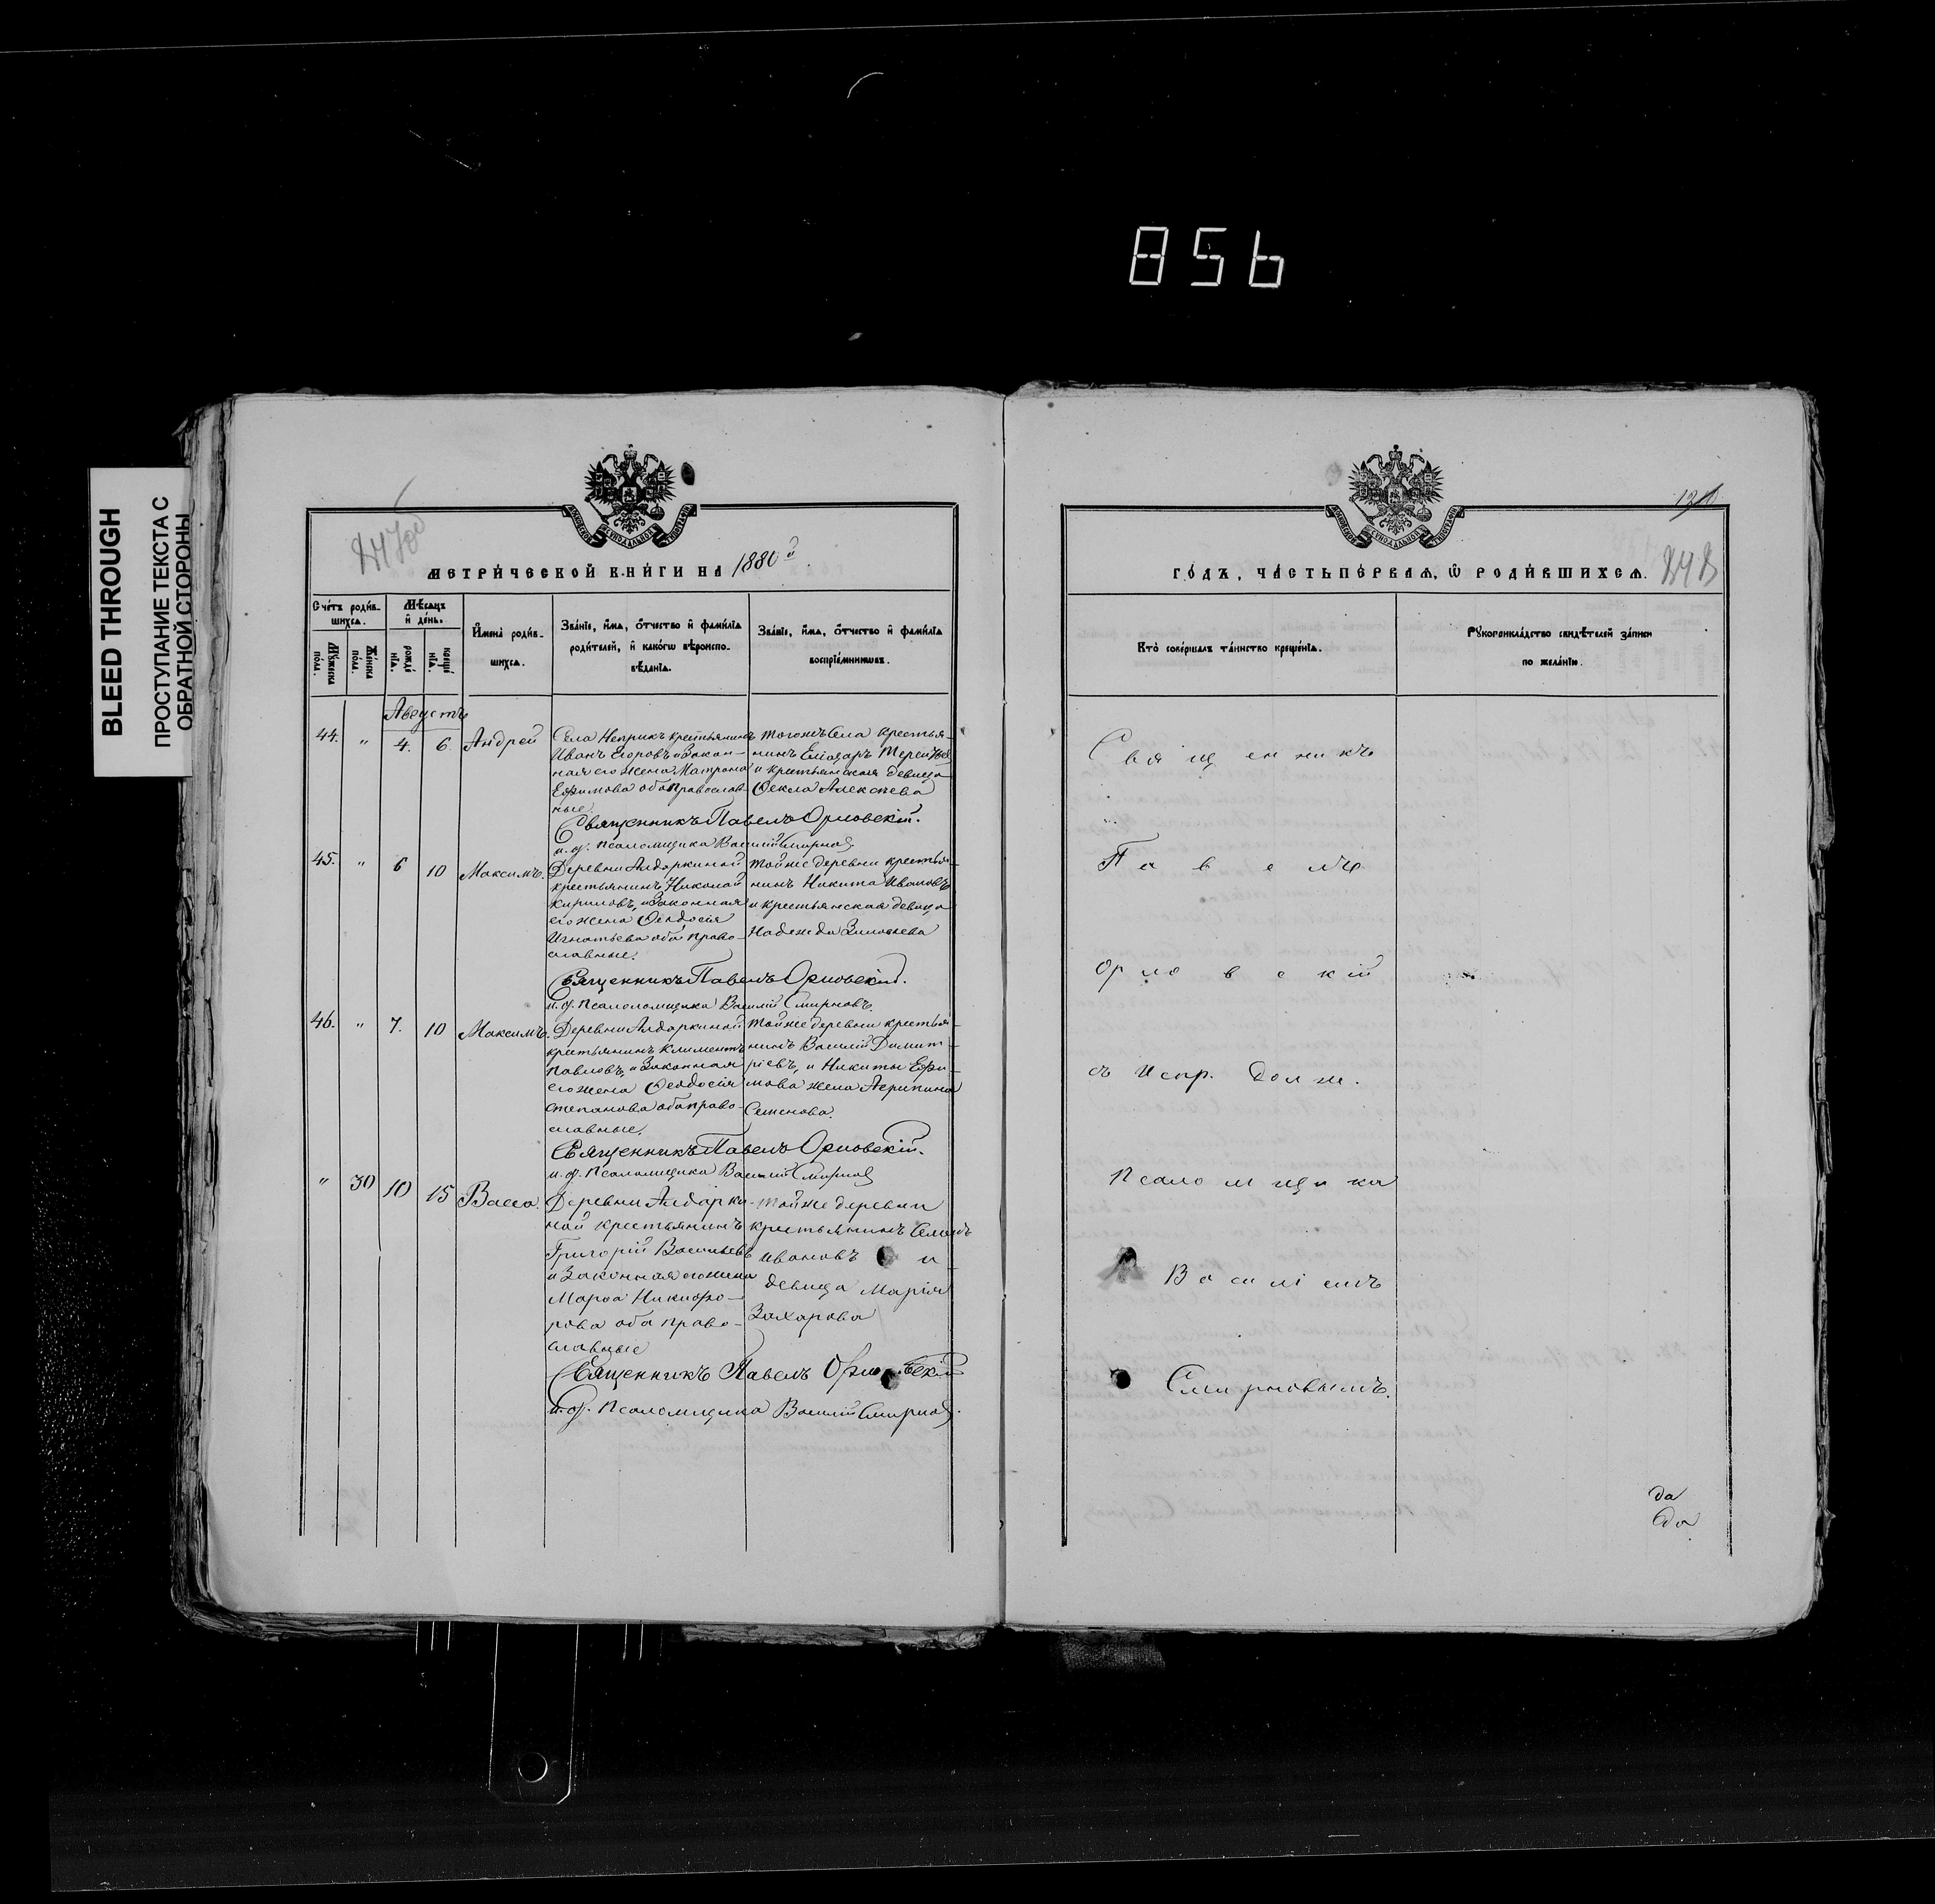 856
BLEED THROUGH
ПРОСТУПАНИЕ ТЕКСТА С
ОБРАТНОЙ СТОРОНЫ
МЕТРИ́ЧЕСКОЙ КНИ́ГИ НА 1880й
Сче́тъ роди́в-
шихсѧ.
Мѣ́сѧцъ
и҆ де́нь.
Мꙋ́жеска
по́ла.
Же́нска
по́ла.
рожде́
нїѧ.
креще́
нїѧ.
И҆мена̀ роди́в-
шихсѧ.
Зва́нїе, и҆́мѧ, ѻ҆́тчество и҆ фами́лїѧ
роди́телей, и҆ како́гѡ вѣроиспо-
вѣ́данїѧ.
Зва́нїе, и҆́мѧ, ѻ҆́тчество и҆ фами́лїѧ
воспрїе́мникѡвъ.
Августъ
44. " 4. 6. Андрей
Села Неприкъ крестьянинъ
Иванъ Егоровъ и Закон-
ная его жена Матрона
Ефимова оба православ-
ные.
Тогожъ Села крестья-
нинъ
и крестьянская девица
Ѳекла Алексѣева
Священникъ Павелъ Орловскій.
и. д. псаломщика Василій Смирновъ
45. " 6 10 Максимъ.
Деревни Алдаркиной
крестьянинъ Николай
Кириловъ, и Законная
его жена Ѳеодосія
Игнатьева оба право-
славные.
Тойже деревни крестья-
нинъ Никита Ивановъ
и крестьянская девица
Надежда Зиновьева
Священникъ Павелъ Орловскій.
и. д. псаломщика Василій Смирновъ.
46. " 7. 10 Максимъ.
Деревни Алдаркиной
крестьянинъ Климентъ
Павловъ, и Законная
его жена Ѳеодосія
Степанова оба право-
славные.
Тойже деревни крестья-
нинъ Василій Димит-
ріевъ, и Никиты Ефи-
мова жена Агрипина
Семенова.
Священникъ Павелъ Орловскій.
и. д. псаломщика Василій Смирновъ
" 30 10 15 Васса.
Деревни Алдарки-
ной крестьянинъ
Григорій Васильевъ
и Законная его жена
Марѳа Никифо-
рова оба право-
славные
Тойже деревни
крестьянинъ Семенъ
Ивановъ и
девица Марія
Захарова
Священникъ Павелъ Орловскій
и. д. псаломщика Василій Смирновъ.
ГО́ДЪ, ЧА́СТЬ ПЕ́РВАѦ, Ѽ РОДИ́ВШИХСѦ.
Кто̀ соверша́лъ та́инство креще́нїѧ.
Рꙋкоприкла́дство свидѣ́телей за́писи
по жела́нїю.
Священникъ
Павелъ
Орловскій
съ Испр. Долж.
Псаломщика
Василіемъ
Смирновымъ.
да